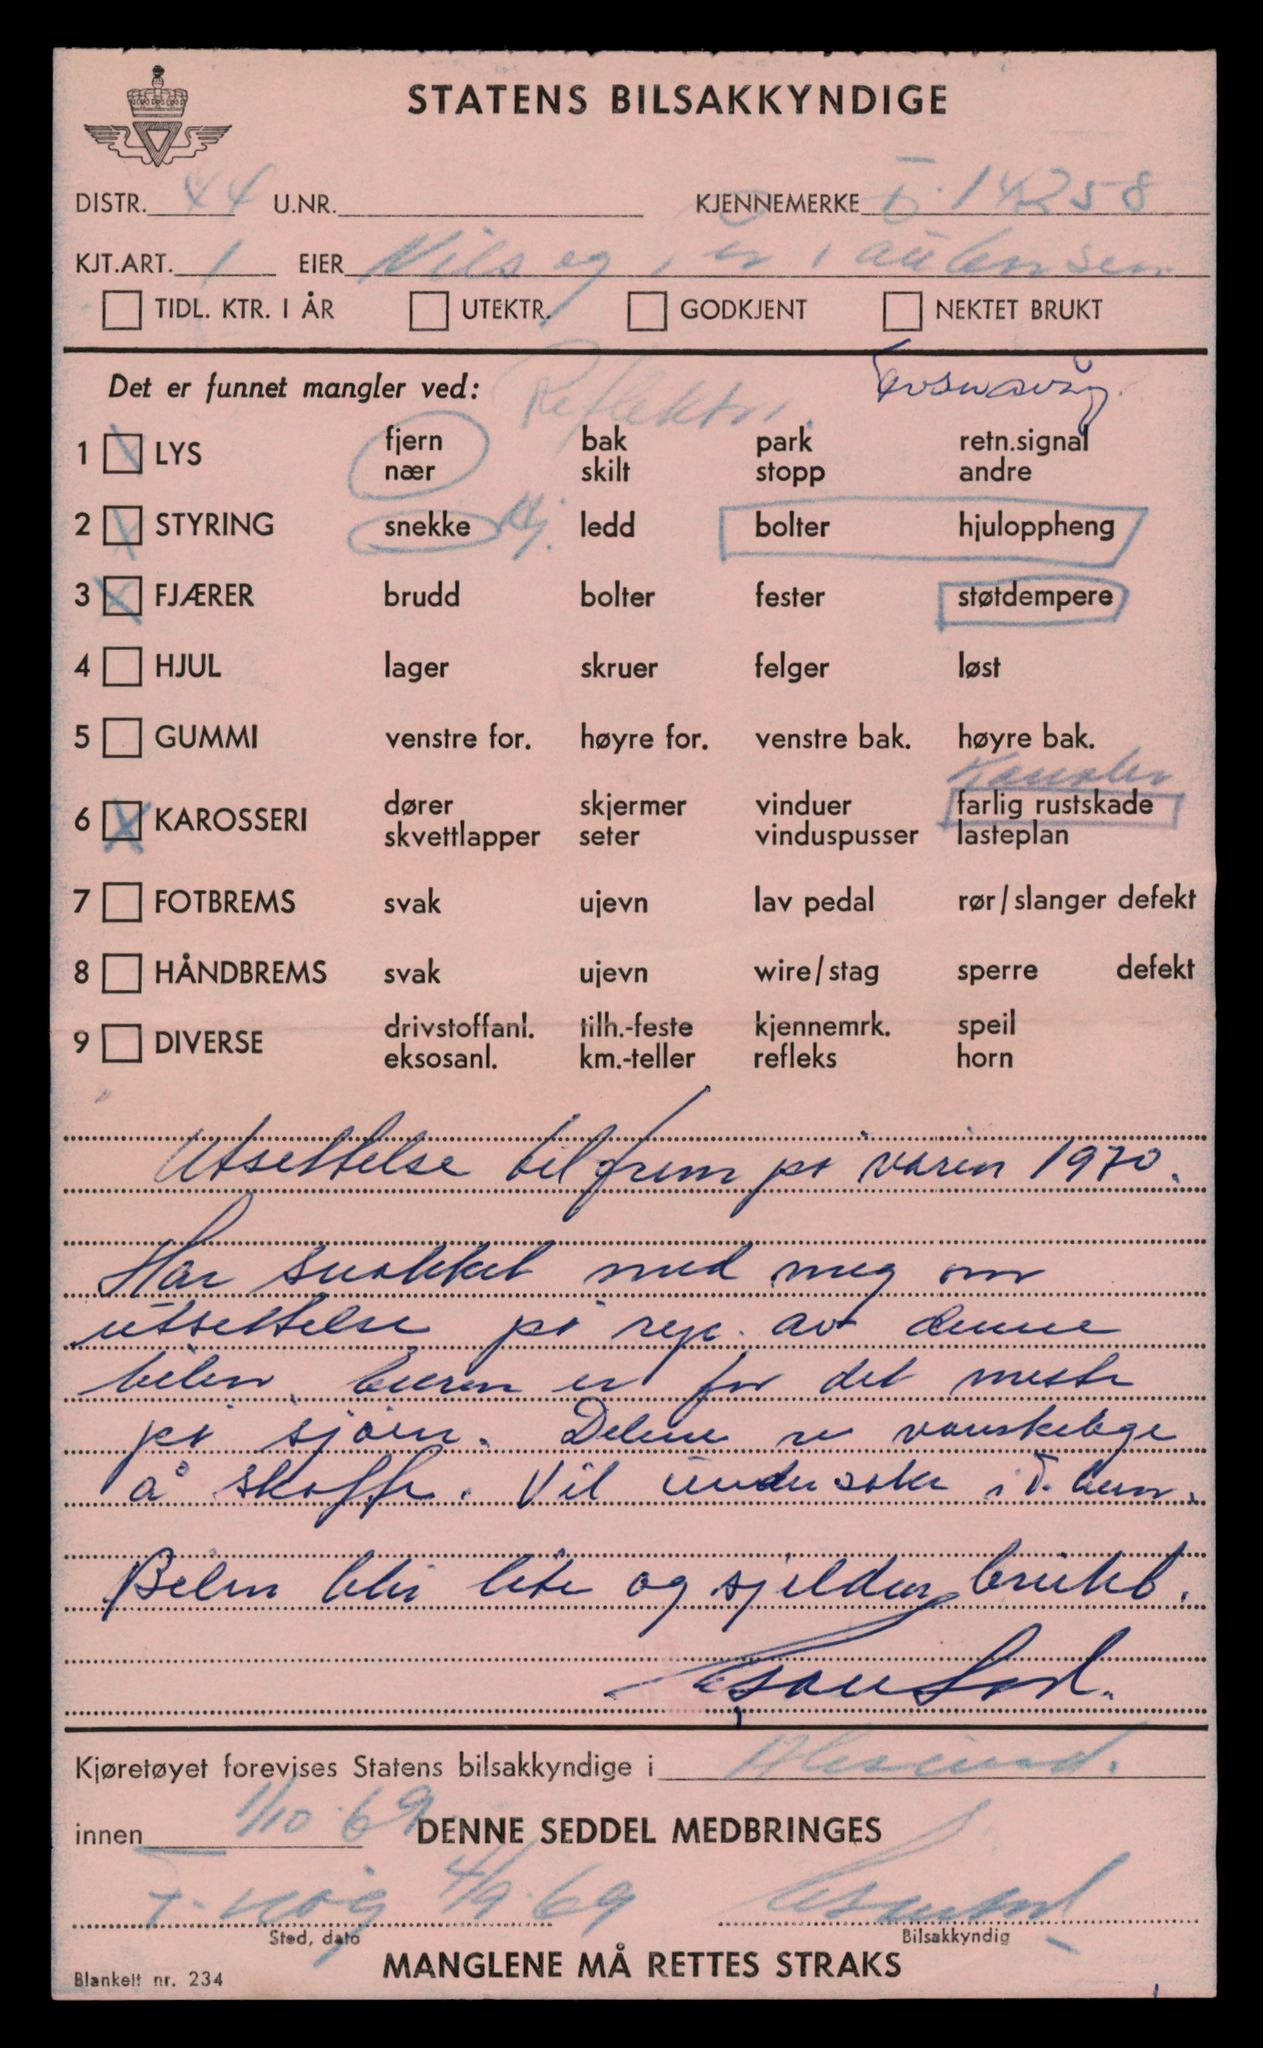 STATENS BILSAKKYNDIGE
DISTR. 44 U.NR. KJENNEMERKE T-14258
KJT.ART. 1 EIER Nils og
TIDL. KTR. I ÅR UTEKTR. GODKJENT NEKTET BRUKT
Det er funnet mangler ved:
1 LYS fjern bak park retn.signal
nær skilt stopp andre
2 STYRING snekke Hj. ledd bolter hjuloppheng
3 FJÆRER brudd bolter fester støtdempere
4 HJUL lager skruer felger løst
5 GUMMI venstre for. høyre for. venstre bak. høyre bak.
Kanaler
6 KAROSSERI dører skjermer vinduer farlig rustskade
skvettlapper seter vinduspusser lasteplan
7 FOTBREMS svak ujevn lav pedal rør/slanger defekt
8 HÅNDBREMS svak ujevn wire/stag sperre defekt
9 DIVERSE drivstoffanl. tilh.-feste kjennemrk. speil
eksosanl. km.-teller refleks horn
Utsettelse til frem på våren 1970.
Har snakket med meg om
utsettelse på rep. av denne
bilen. Eieren er for det meste
på sjøen. Delene er vanskelige
å skaffe. Vil undersøke i
Bilen blir lite og sjelden brukt.
Kjøretøyet forevises Statens bilsakkyndige i Ålesund.
innen 1/10-69 DENNE SEDDEL MEDBRINGES
T. våg 4/9-69
Sted, dato Bilsakkyndig
MANGLENE MÅ RETTES STRAKS
Blankett nr. 234